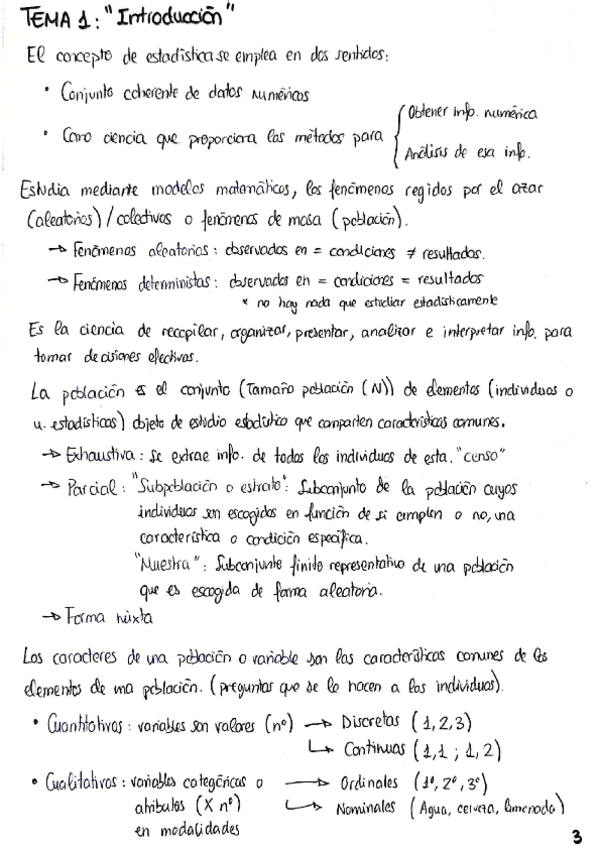 TEMA 1: "Introducción"
El concepto de estadística se emplea en dos sentidos:
• Conjunto coherente de datos numéricos
• Como ciencia que proporciona los métodos para { Obtener info. numérica
Análisis de esa info.
Estudia mediante modelos matemáticos, los fenómenos regidos por el azar
(aleatorios) / colectivos o fenómenos de masa (población).
→ Fenómenos aleatorios: observados en = condiciones ≠ resultados.
→ Fenómenos deterministas: observados en = condiciones = resultados
* no hay nada que estudiar estadísticamente
Es la ciencia de recopilar, organizar, presentar, analizar e interpretar info. para
tomar decisiones efectivas.
La población es el conjunto (Tamaño población (N)) de elementos (individuos o
u. estadísticas) objeto de estudio estadístico que comparten características comunes.
→ Exhaustiva: se extrae info. de todos los individuos de esta. "censo"
→ Parcial: "Subpoblación o estrato": Subconjunto de la población cuyos
individuos son escogidos en función de si cumplen o no, una
característica o condición específica.
"Muestra": Subconjunto finito representativo de una población
que es escogida de forma aleatoria.
→ Forma mixta
Los caracteres de una población o variable son las características comunes de los
elementos de una población. (preguntas que se le hacen a los individuos).
• Cuantitativos: variables son valores (nº) → Discretas (1,2,3)
↳ Continuas (1,1 ; 1,2)
• Cualitativos: variables categóricas o → Ordinales (1º, 2º, 3º)
atributos (X nº) ↳ Nominales (Agua, cerveza, limonada)
en modalidades
3